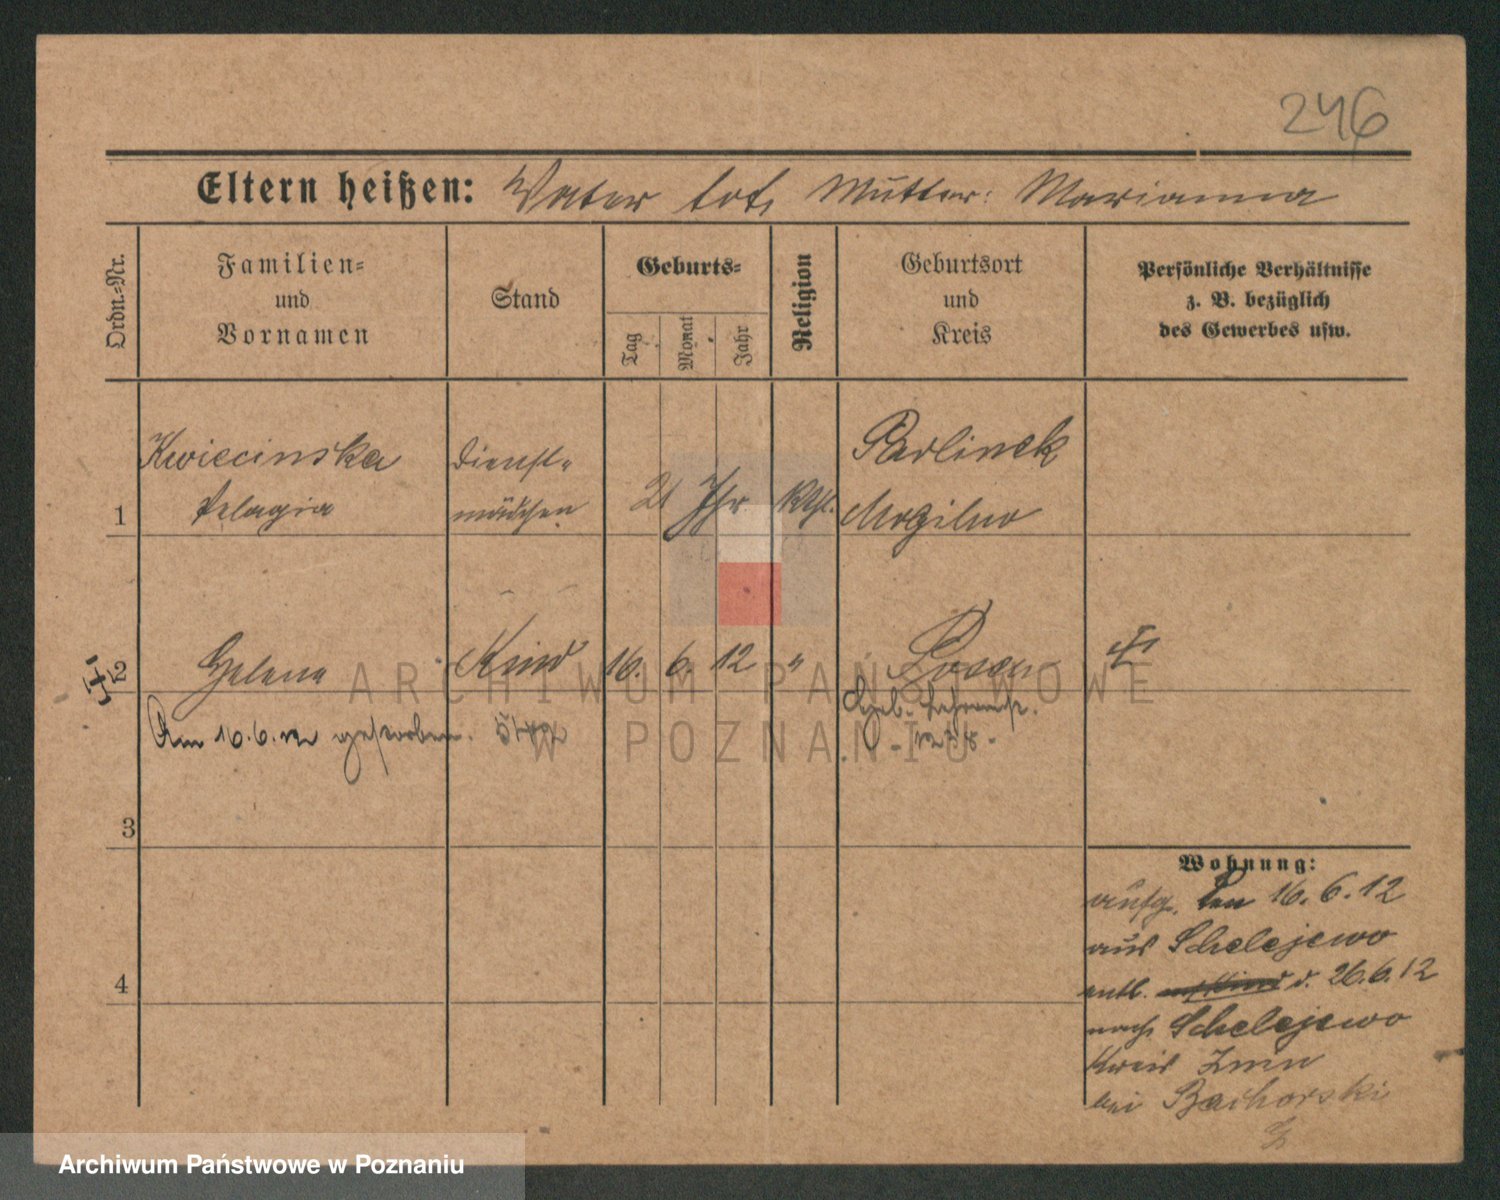 246
Eltern heißen: Vater tot, Mutter: Marianna
Ordn.-Nr.
Familien-
und
Vornamen
Stand
Geburts-
Tag
Monat
Jahr
Religion
Geburtsort
und
Kreis
Persönliche Verhältnisse
z. B. bezüglich
des Gewerbes usw.
1
Kwiecinska
Pelagia
Dienst-
mädchen
21 Jhr
Kthl.
Parlinek
Mogilno
2
Helena
Kind
16. 6. 12
"
Posen
Am 16.6.12 gestorben.
Geb. Hebammenst.
3
4
Wohnung:
aufg. den 16. 6. 12
aus Schelejewo
entl. d. 26.6.12
nach Schelejewo
Kreis Znin
bei Bachorski
ARCHIWUM PAŃSTWOWE
W POZNANIU
Archiwum Państwowe w Poznaniu